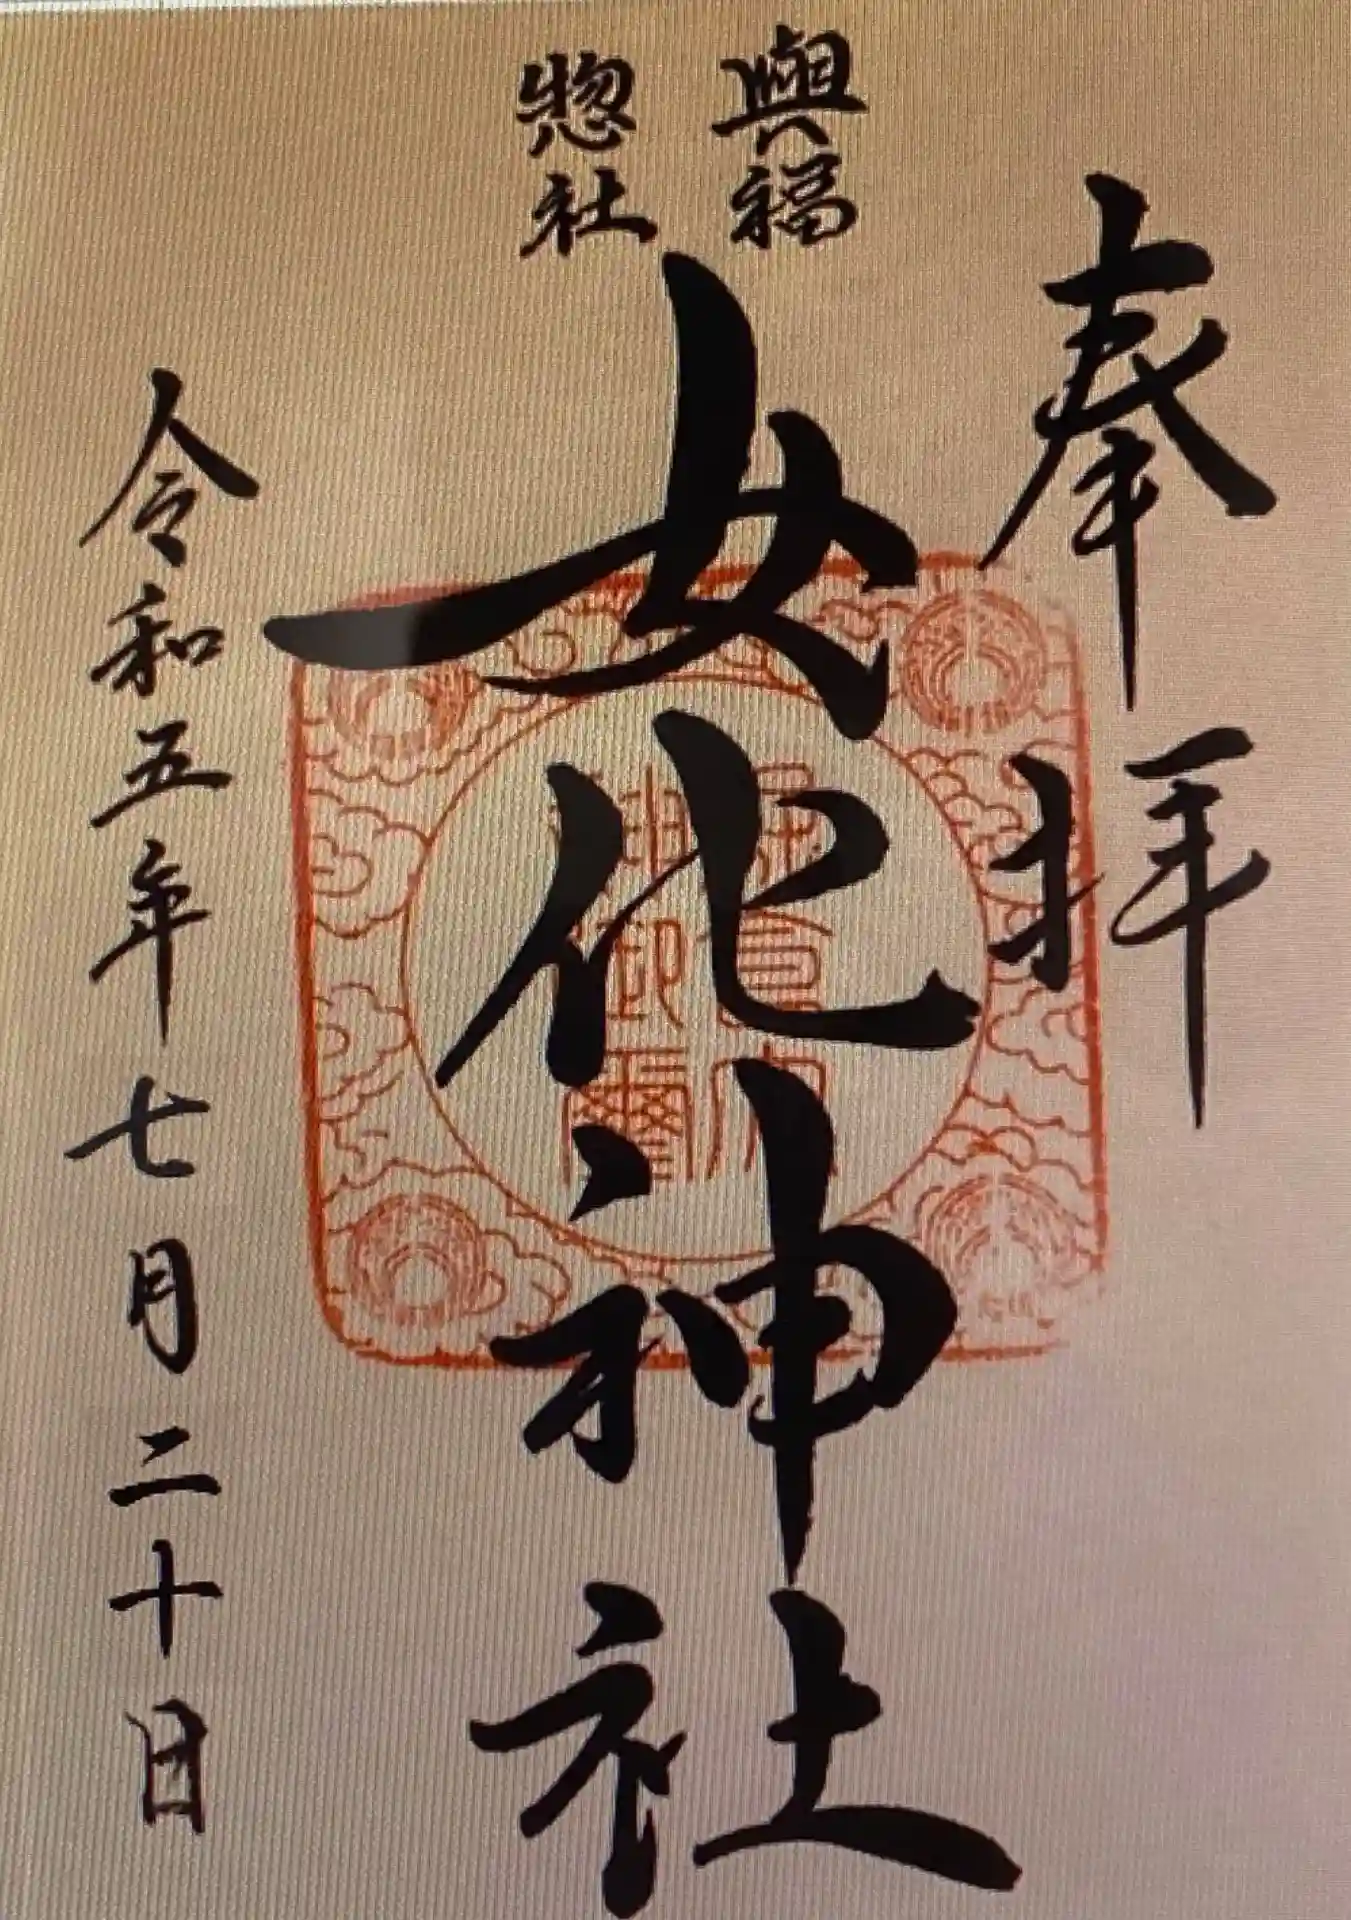 奉拝
興福
惣社
女化神社
令和五年七月二十日